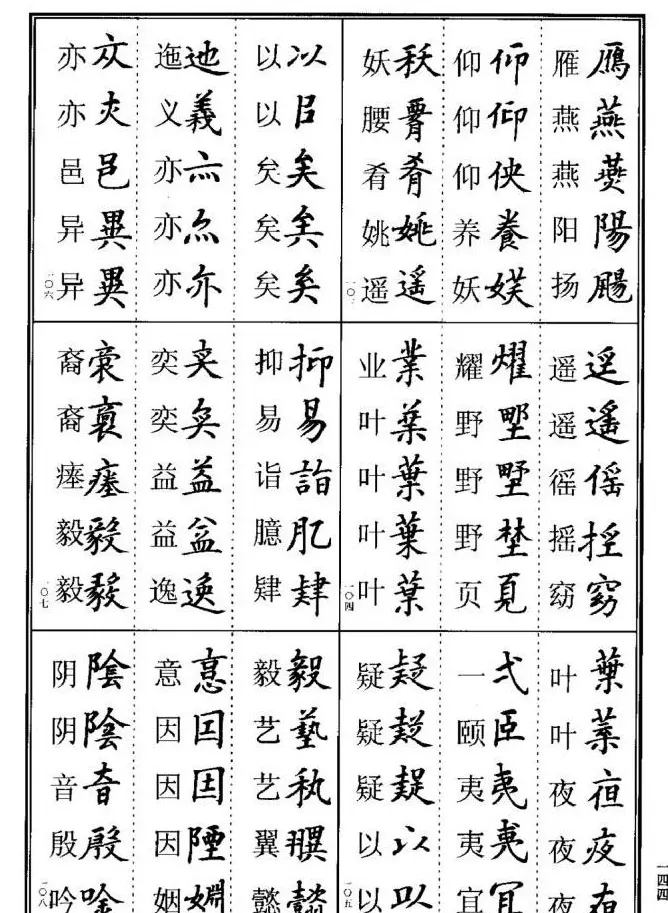 雁鴈 燕燕 燕 阳陽 扬颺
仰仰 仰仰 仰 养養 妖媄
妖秗 腰 肴肴 姚姚 遥遥
一〇
遥遥 遥遙 徭徭 摇 窈窈
耀耀 野野 野墅 野埜 页頁
业業 叶葉 叶葉 叶葉 叶葉
一〇四
叶葉 叶葉 夜亱 夜夜 夜
一弌 颐𦣞 夷夷 夷夷 宜冝
疑疑 疑疑 疑疑 以以 以以
一〇五
以以 以㠯 矣矣 矣矣 矣矣
迤迆 义義 亦亦 亦亦 亦亦
亦亦 亦亦 邑邑 异異 异異
一〇六
抑抑 易易 诣詣 臆肊 肄肄
奕奕 奕奕 益益 益益 逸逸
裔裔 裔裔 瘗瘞 毅毅 毅毅
一〇七
毅毅 艺藝 艺秇 翼 懿懿
意意 因囙 因因 因陻 姻婣
阴陰 阴陰 音音 殷殷 吟唫
一〇八
一四四